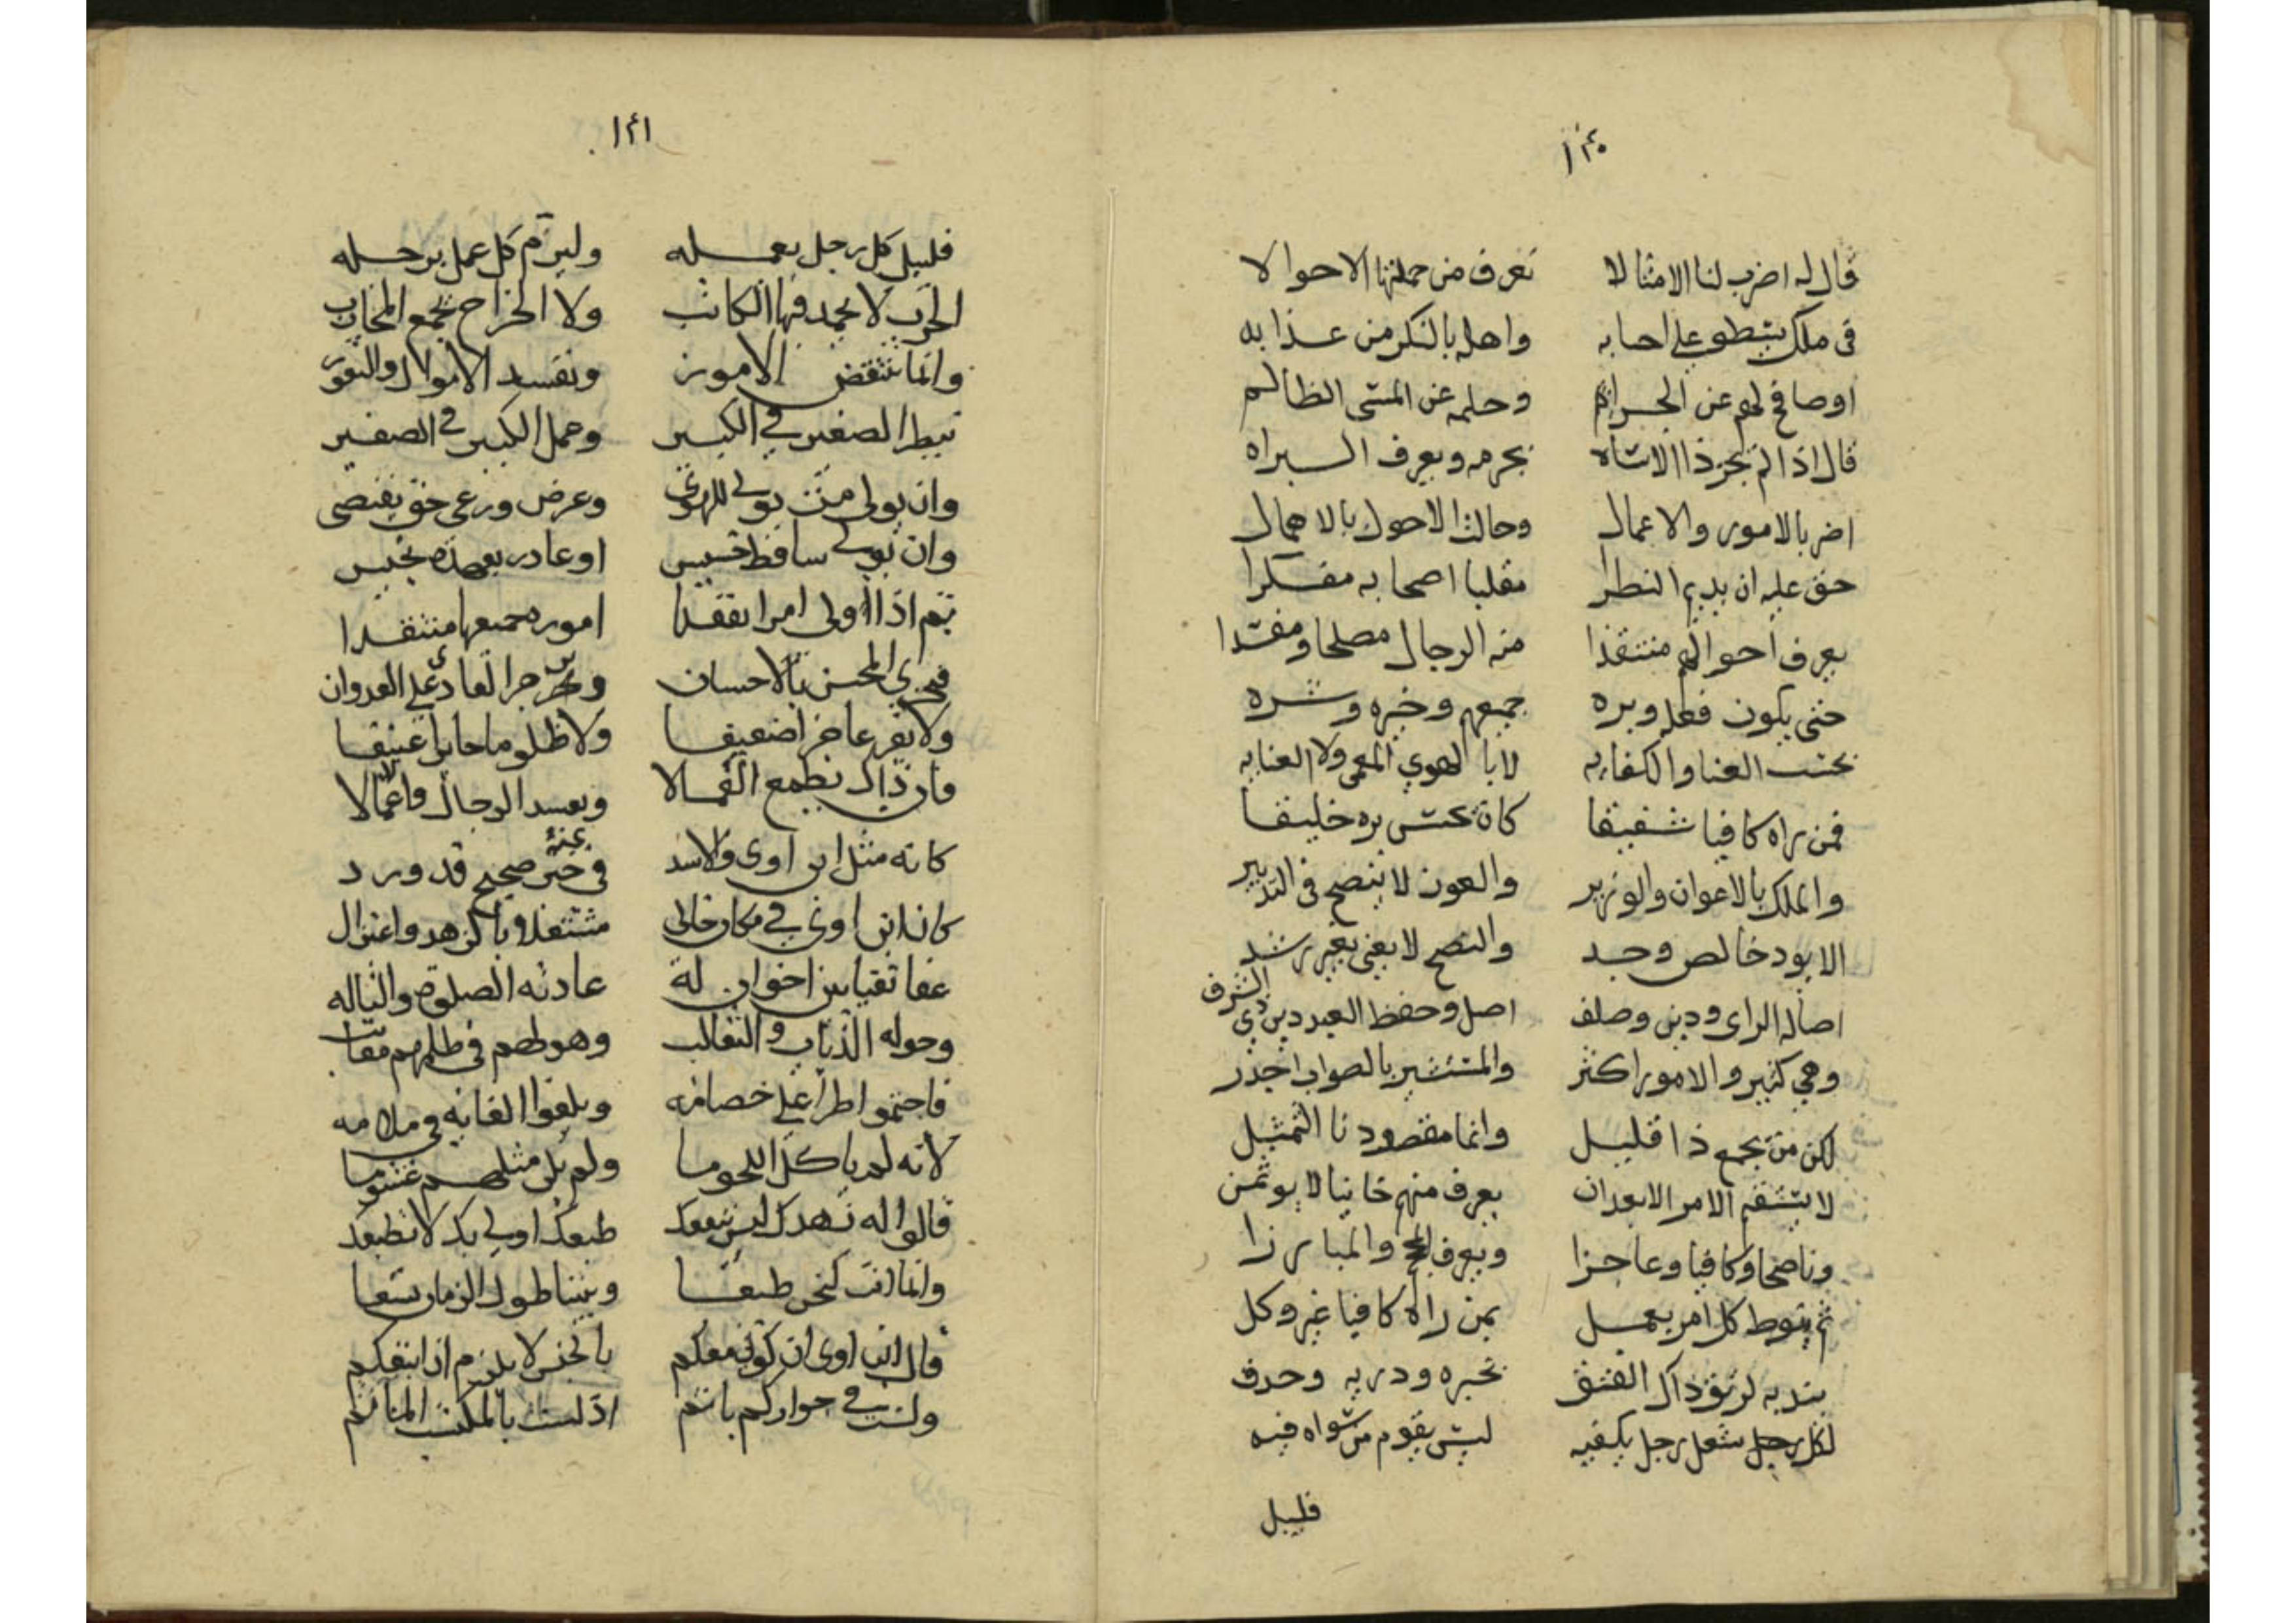 ١٤٠
قال له اضرب لنا الامثالا تعرف من جملتها الاحوالا
فى ملك يسطو على اصحابه واهله بالنكر من عذابه
اوصافح لهم عن الجرائم وحلمه عن المسى الظالم
قال اذا لم يجز ذا الاساه بجرمه ويعرف البراه
اضر بالامور والاعمال وحالت الاحول بالاهمال
حق عليه ان يديم النظرا مقلبا اصحابه مفكرا
يعرف احوالهم منتقدا من الرجال مصلحا ومفسدا
حتى يكون فعله وبره جميعهم وخيره وشره
بحسب الغنا والكفايه لا بالهوي المعمى ولا العنايه
فمن راه كافيا شفيقا كان بحسن بره خليقا
والملك بالاعوان والوزير والعون لا ينصح فى التدبير
الا بود خالص وجد والنصح لا يغنى بغير رشد
اصاله الراى ودين وصلف اصل وحفظ العهد دين ذي الشرف
وهي كثير والامور اكثر والمستشير بالصواب اجدر
لكن من يجمع ذا قليل وانما مقصودنا التمثيل
لا يستقيم الامر الا بعد ان يعرف منهم خاينا لا يوتمن
وناصحا وكافيا وعاجزا ويعرف والمبارزا
ثم ينوط كل امر بعمل بمن راه كافيا غير وكل
يندبه لرتق ذاك الفتق بخبره ودربه وحدق
لكل شغل رجل يكفيه ليس يقوم من سواه فيه
قليل
١٤١
فليبل كل رجل بعمله وليرم كل عمل برجله
الحرب لا يحمد فيها الكاتب ولا الخراج يجمع المحارب
وانما تنتقض الامور وتفسد الاموال والثغور
نيط الصغير في الكبير وحمل الكبير في الصغير
وان يولى من يولى للهوى وعرض ورعى حق يقتضى
وان يولى ساقط خسيس او غادر بعهده يخيس
ثم اذا اولى امرا تفقدا اموره جميعها منتقدا
فيجزي المحسن بالاحسان جزا العادي على العدوان
ولا يقر عاجزا ضعيفا ولا ظلوما جايرا عنيفا
فان ذاك يطمع العمالا ويفسد الرجال والاعمالا
كانه مثل ابن اوى والاسد فى خبر صحيح عنه قد ورد
كان ابن اوى في مكان خالى مشتغلا بالزهد واعتزال
عفا تقيا بين اخوان له عادته الصلوة والتاله
وحوله الذئاب والثعالب وهو لهم فى ظلمهم معاتب
فاجتمعوا طرا على خصامه وبلغوا الغايه في ملامه
لانه لم ياكل اللحوما ولم يك مثلهم غشوما
قالوا له زهدك ليس ينفعك طبعك اولى بك لا تطبعك
وانما انت كنحن طبعا وبيننا طول الزمان تسعا
قال ابن اوى ان كونى معكم بالجنس لا يلزم ان اتبعكم
ولست في جواركم باثم اذ ليست بالمكث الماثم